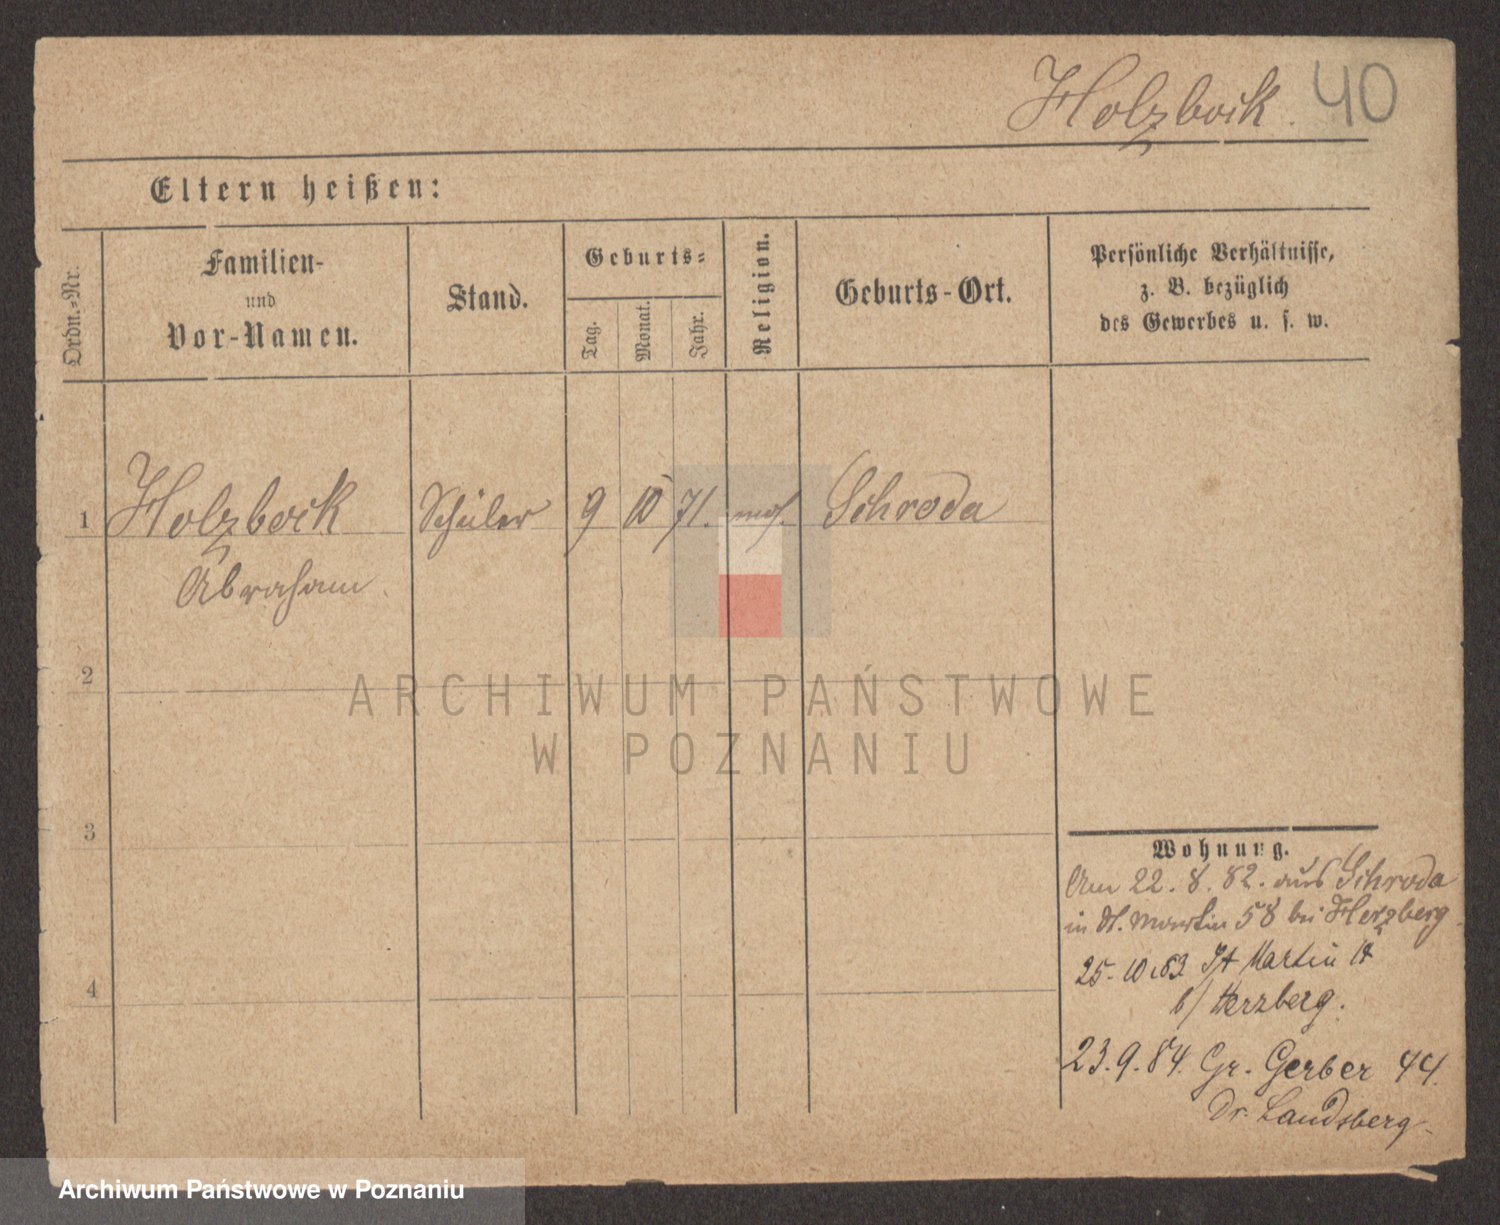 Holzbock. 40
Eltern heißen:
Ordn.-Nr.
Familien-
und
Vor-Namen.
Stand.
Geburts-
Tag.
Monat.
Jahr.
Religion.
Geburts-Ort.
Persönliche Verhältnisse,
z. B. bezüglich
des Gewerbes u. s. w.
1 Holzbock Schüler 9 10 71. mos. Schroda
Abraham
2
ARCHIWUM PAŃSTWOWE
W POZNANIU
3
4
Wohnung.
Am 22. 8. 82. aus Schroda
in St. Martin 58 bei Herzberg
25. 10. 83 St Martin
b/ Herzberg.
23. 9. 84. Gr. Gerber 44.
Dr. Landsberg
Archiwum Państwowe w Poznaniu